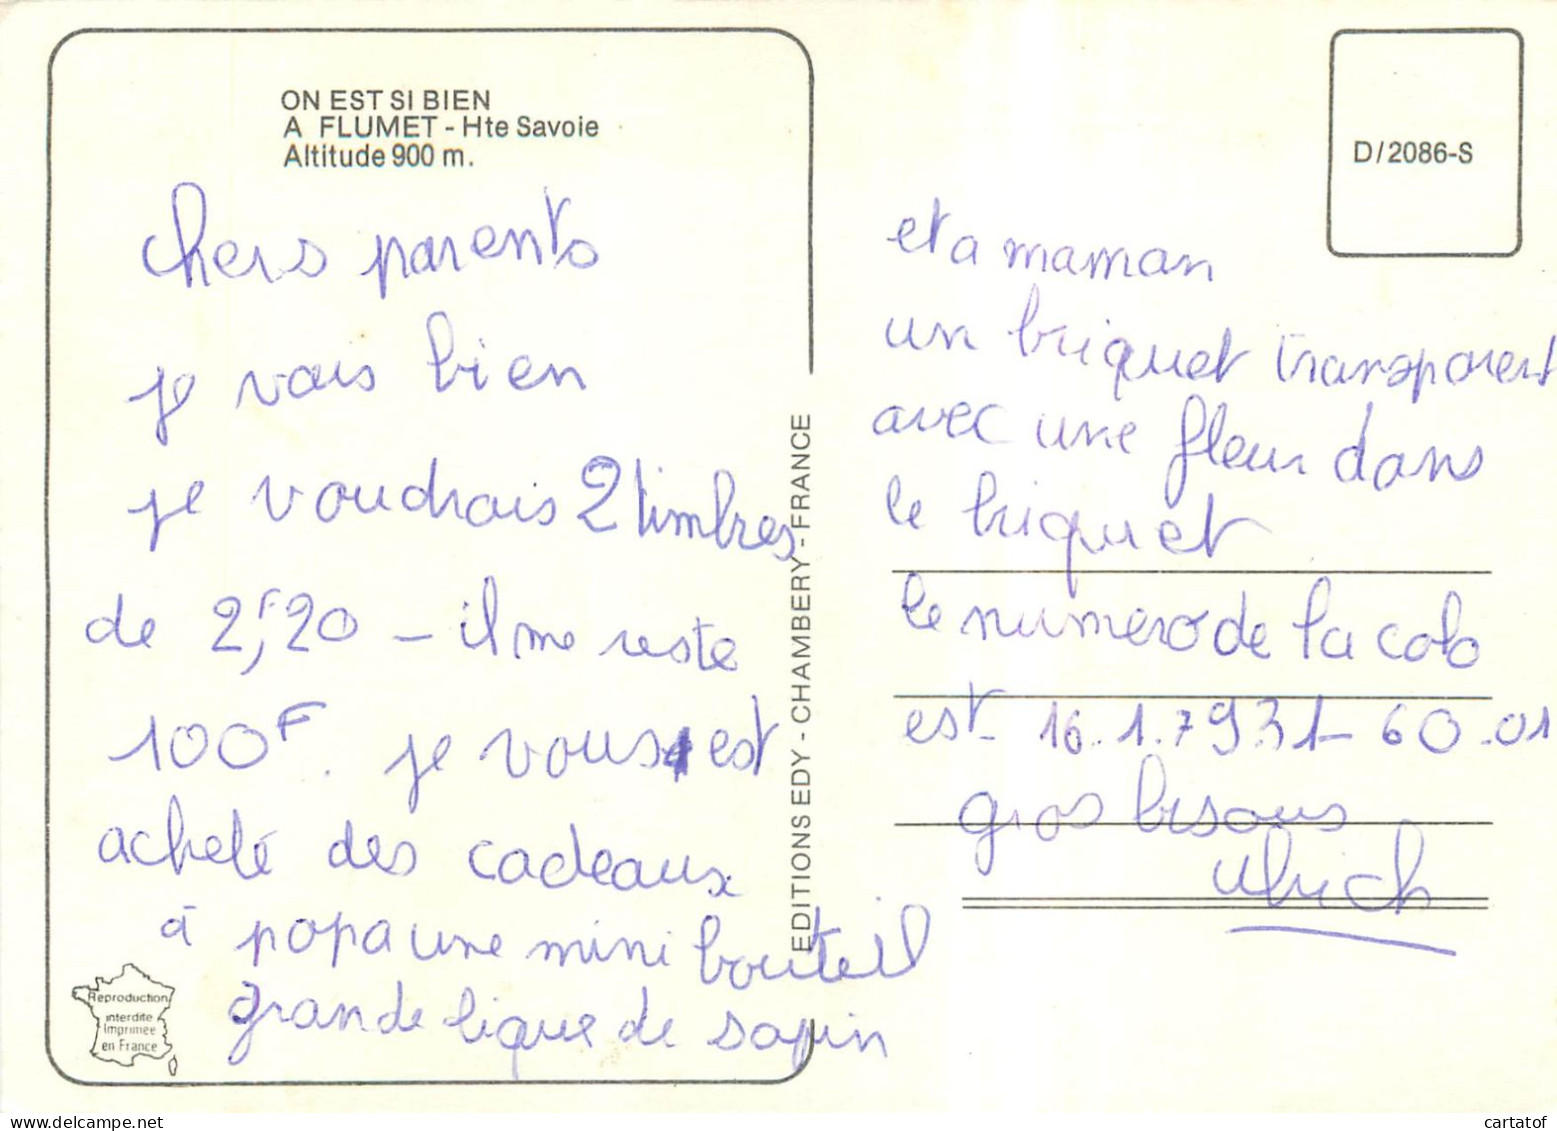 ON EST SI BIEN
A FLUMET - Hte Savoie
Altitude 900 m.
chers parents
je vais bien
je voudrais 2 timbres
de 2,F20 - il me reste
100F. je vous est
acheté des cadeaux
à papa une mini bouteil
grande lique de sapin
Reproduction
interdite
Imprimée
en France
EDITIONS EDY - CHAMBERY - FRANCE
D/2086-S
et a maman
un briquet transparent
avec une fleur dans
le briquet
le numero de la colo
est 16.1.79.31-60.01
gros bisous
Ulrich
cartatof